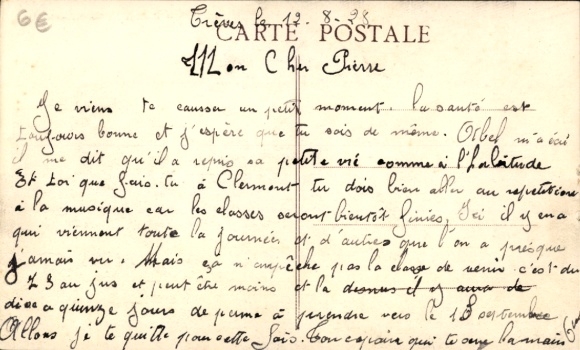 6€
Trèves le 12-8-28
CARTE POSTALE
Mon Cher Pierre
Je viens te causser un petit moment. la santé est
toujours bonne et j'espère que tu sois de même. Orbel m'a écri
il me dit qu'il a repris sa petite vie comme à l'habitude
Et toi que fais-tu à Clermont tu dois bien aller au repetitions
à la musique car les classes seront bientôt finies, Ici il y en a
qui viennent toute la journées et d'autres que l'on a presque
jamais vu. Mais ça n'empêche pas la classe de venir c'est du
23 au jus et peut être moins et la
dice a quinze jours de perme à prendre vers le 15 septembre
Allons je te quitte pour cette fois. Ton copain qui te serre la main